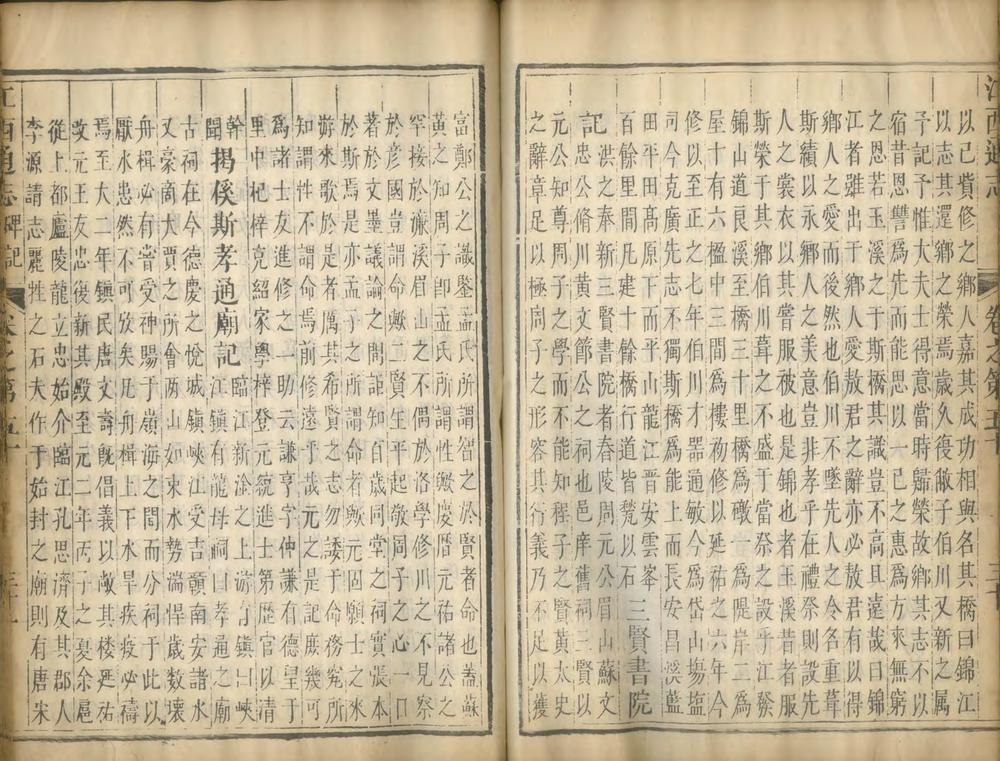 以己貲修之鄉人嘉其成功相與名其橋曰錦江
以志其還鄉之榮焉歲久復敝子伯川又新之属
予記予惟大夫士得意當時歸榮故鄉其志不以
宿昔恩讐爲先而能思以一已之惠爲方來無窮
之恩若玉溪之于斯橋其識豈不高且遠哉曰錦
江者雖出于鄉人愛敖君之辭亦必敖君有以得
鄉人之愛而後然也伯川不墜先人之令名重葺
斯績以永鄉人之美豈非孝乎在禮祭則設先
人之裳衣以其嘗服被也是錦也者玉溪昔者服
斯榮于其鄉伯川葺之不盛于當祭之設乎江發
錦山道艮溪中至橋三十里橋爲礅一爲隄岸二爲
屋十有六楹間爲樓修以延祐之六年今
修以至正之七年伯川才器通敏今爲岱山塲塩
司今克廣先志不獨斯橋爲能上而長安昌溪藍
田平田高原下而平山龍江晉安雲峯
百餘里間凡建十餘橋行道皆甃以石 三賢書院
記 洪之奉新三賢書院者舂陵周元公眉山蘇文
忠公脩川黄文節公之祠也邑庠舊祠三賢以
元公知尊周子之學而不能知周子之賢黄太史
之辭章足以極周子之形容其行義乃不足以獲
富鄭公之識鑒孟氏所謂智之於賢者命也葢蘇
黄之知周子卽孟氏所謂性歟慶曆元祐諸公之
罕接於濂溪眉山之不偶於洛學修川之不見察
於彦國豈謂命歟二賢生平起敬同子之心一口
著於文墨議論之間詎知百歲同堂之祠實張本
於斯焉是亦孟子之所謂命者歟元固願士之來
游來歌於是者厲其希賢之志勿諉于命務究所
知謂性不謂命焉前修遠乎哉元之是記庶幾可
爲諸士友進修之一助云謙亨字仲謙有德望于
里中杞梓克紹家學梓登元統進士第歷官以清
幹聞 揭傒斯孝通廟記 臨江新淦之上游有鎮曰峽
江鎮有龍母祠曰孝通之廟
古祠在今德慶之悅城鎮峽江受吉贑南安諸水
又豪商大賈之所會两山如束水勢湍悍歲数壊
舟楫必有嘗受神賜于嶺海之間而分祠于此以
厭水患然不可攷矣凡舟楫上下水旱疾疫必禱
焉至大二年鎮民唐文壽旣倡義以敞其楼延祐
改元王友忠後新其殿至元二年丙子之夏余扈
從上都廬陵龍立忠始介臨江孔思濟及其郡人
李源請志麗牲之石夫作于始封之廟則有唐宋
江西通志 碑記